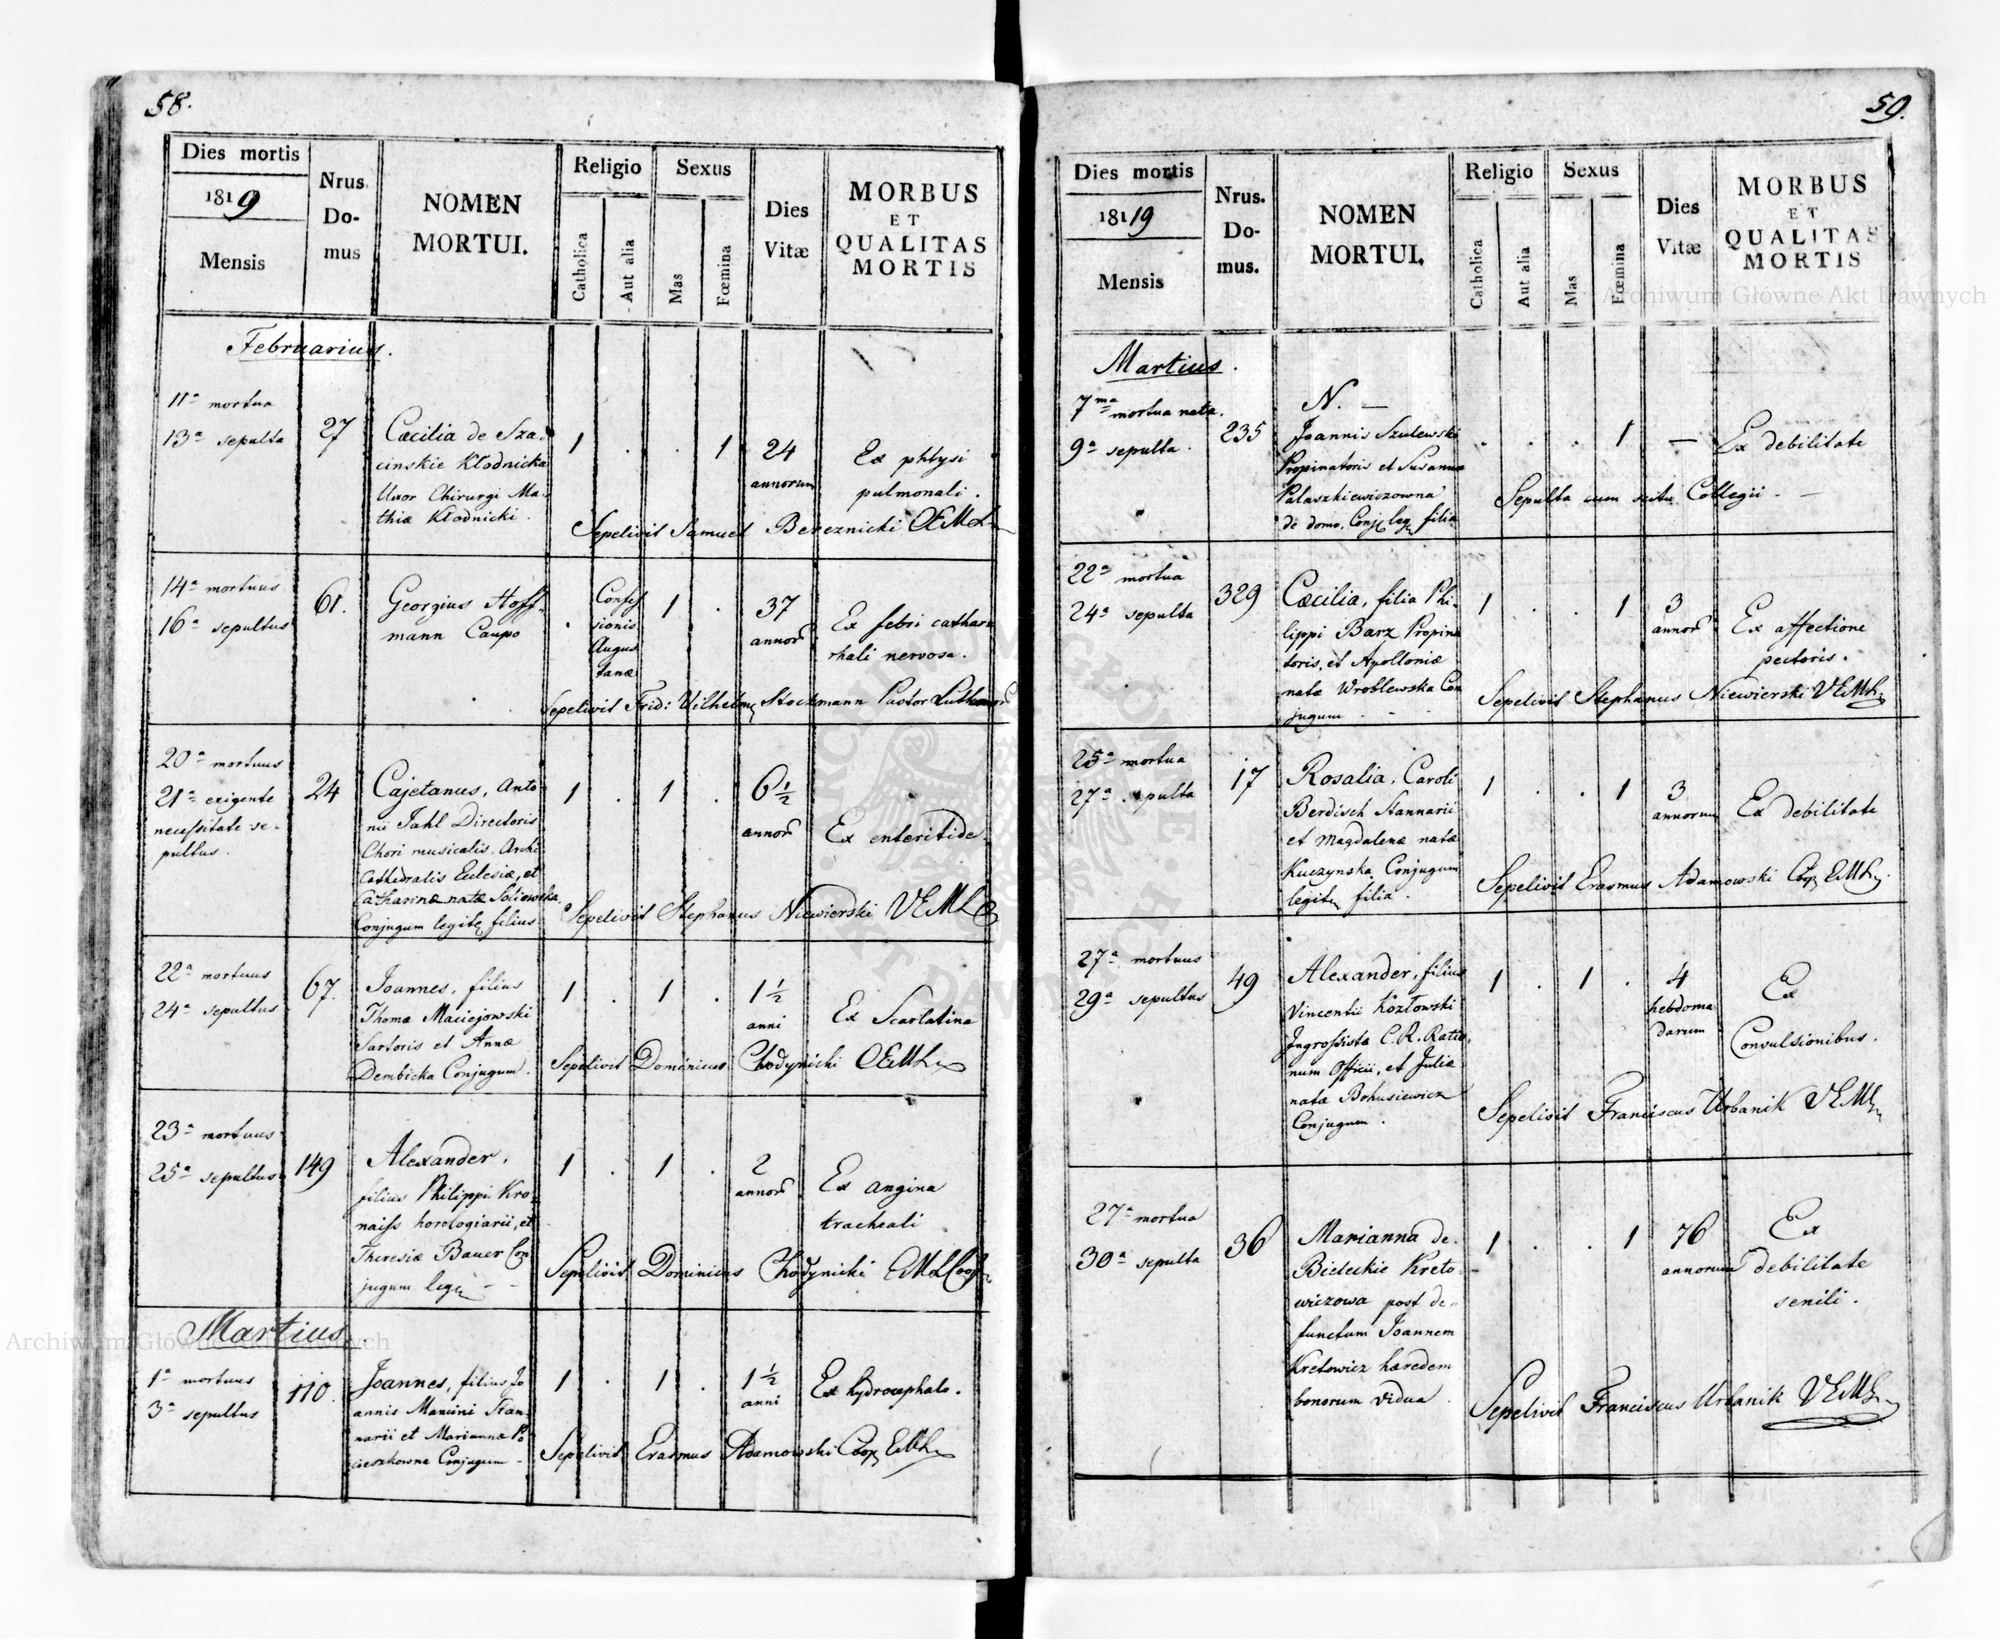 58.
Dies mortis
1819
Mensis
Nrus
Do-
mus
NOMEN
MORTUI.
Religio
Catholica
Aut alia
Sexus
Mas
Fœmina
Dies
Vitæ
MORBUS
ET
QUALITAS
MORTIS
Februarius.
11a mortua
13a sepulta
27
Cæcilia de Sza-
cinskie Kłodnicka
Uxor Chirurgi Ma-
thiæ Kłodnicki.
1 . . 1
24
annorum
Ex phtysi
pulmonali.
Sepelivit Samuel Bereznicki CEML
14a mortuus
16a sepultus
61.
Georgius Hoff-
mann Caupo
. Confes
sionis
Augus
tanæ
1 .
37
annor
Ex febri cathar
rhali nervosa.
Sepelivit Frid: Wilhelm Stockmann Pastor
20a mortuus
21a exigente
necessitate se-
pultus.
24
Cajetanus, Anto-
nii Jahl Directoris
Chori musicalis Archi
Cathedralis Eclesiæ, et
Catharinæ natæ
Conjugum legit filius
1 . 1 .
6 1/2
annor
Ex enteritide.
Sepelivit Stephanus Niewierski VEML
22a mortuus
24a sepultus
67.
Joannes, filius
Thomæ Maciejowski
Sartoris et Annæ
Dembicka Conjugum.
1 . 1 .
1 1/2
anni
Ex Scarlatina
Sepelivit Dominicus Chodynicki CEML
23a mortuus
25a sepultus
149
Alexander,
filius Philippi Kro-
naiss horologiarii, et
Theresiæ Bauer Con
jugum leg - -
1 . 1 .
2
annor
Ex angina
tracheali
Sepelivit Dominicus Chodynicki EML Coop
Martius.
1a mortuus
3a sepultus
110.
Joannes, filius Jo
annis Mancini Stan-
narii et Mariannæ Po
cieszkowna Conjugum -
1 . 1 .
1 1/2
anni
Ex hydrocephalo.
Sepelivit Erasmus Adamowski Coop EML
59.
Dies mortis
1819
Mensis
Nrus.
Do-
mus.
NOMEN
MORTUI.
Religio
Catholica
Aut alia
Sexus
Mas
Fœmina
Dies
Vitæ
MORBUS
ET
QUALITAS
MORTIS
Martius.
7ma mortua nata.
9a sepulta.
235
N. —
Joannis Szulewski
Propinatoris et Susannæ
Palaszkiewiczowna
de domo. Conj leg filia
. . . 1
—
Ex debilitate
Sepulta cum scitu Collegii - —
22a mortua
24a sepulta
329
Cæcilia, filia Phi-
lippi Barz Propina
toris, et Apolloniæ
nata Wroblewska Con
jugum - -
1 . . 1
3
annor
Ex affectione
pectoris.
Sepelivit Stephanus Niewierski VEML
25a mortua
27a sepulta
17
Rosalia, Caroli
Berdisch Stannarii
et Magdalenæ natæ
Kuczynska Conjugum
legit filia.
1 . . 1
3
annorum
Ex debilitate
Sepelivit Erasmus Adamowski Coop EML
27a mortuus
29a sepultus
49
Alexander, filius
Vincentii Kozłowski
Ingrossista C. R. Ratio-
num Officii, et Juliæ
nata Bohusiewicz
Conjugum.
1 . 1 .
4
hebdoma
darum
Ex
Convulsionibus.
Sepelivit Franciscus Urbanik VEML
27a mortua
30a sepulta
36
Marianna de
Bieleckie Kreto-
wiczowa post de-
functum Joannem
Kretowicz hæredem
bonorum Vidua.
1 . . 1
76
annorum
Ex
debilitate
senili.
Sepelivit Franciscus Urbanik VEML
Archiwum Główne Akt Dawnych
Archiwum Główne Akt Dawnych
ARCHIWUM GŁÓWNE AKT DAWNYCH